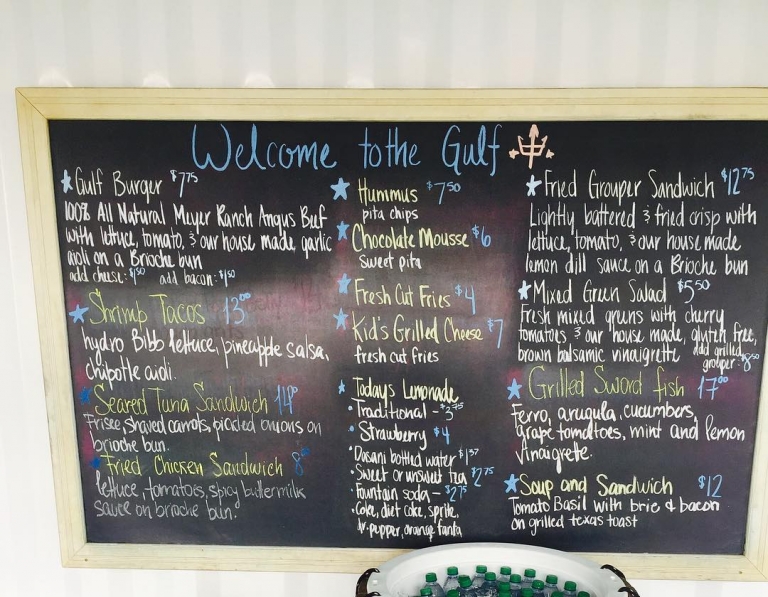 Welcome to the Gulf
Gulf Burger $7.75
100% All Natural Meyer Ranch Angus Beef
with lettuce, tomato, & our house made garlic
aioli on a Brioche bun
add cheese: $1.50 add bacon: $1.50
Shrimp Tacos 13.00
hydro Bibb lettuce, pineapple salsa,
chipotle aioli.
Seared Tuna Sandwich 14.00
Frisee, shaved carrots, pickled onions on
brioche bun.
Fried Chicken Sandwich 8.00
lettuce, tomatoes, spicy buttermilk
sauce on brioche bun.
Hummus $7.50
pita chips
Chocolate Mousse $6
sweet pita
Fresh Cut Fries $4
Kid's Grilled Cheese $7
fresh cut fries
Todays Lemonade
• Traditional - $3.75
• Strawberry $4
• Dasani bottled water
• Sweet or unsweet tea $2.75
• Fountain soda - $2.75
• Coke, diet coke, sprite,
dr. pepper, orange fanta
Fried Grouper Sandwich $12.75
Lightly battered & fried crisp with
lettuce, tomato, & our house made
lemon dill sauce on a Brioche bun
Mixed Green Salad $5.50
Fresh mixed greens with cherry
tomatoes & our house made, gluten free,
brown balsamic vinaigrette add grilled
grouper: $8.50
Grilled Sword fish 17.00
Ferro, arugula, cucumbers,
grape tomatoes, mint and lemon
vinaigrette.
Soup and Sandwich $12
Tomato Basil with brie & bacon
on grilled texas toast